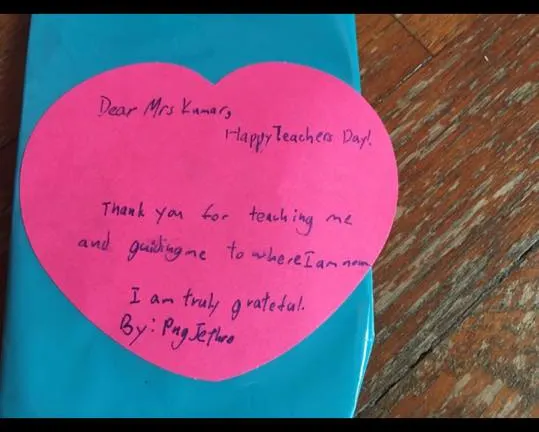 Dear Mrs Kumar,
Happy Teachers Day!
Thank you for teaching me
and guiding me to where I am now
I am truly grateful.
By: Png Jethro